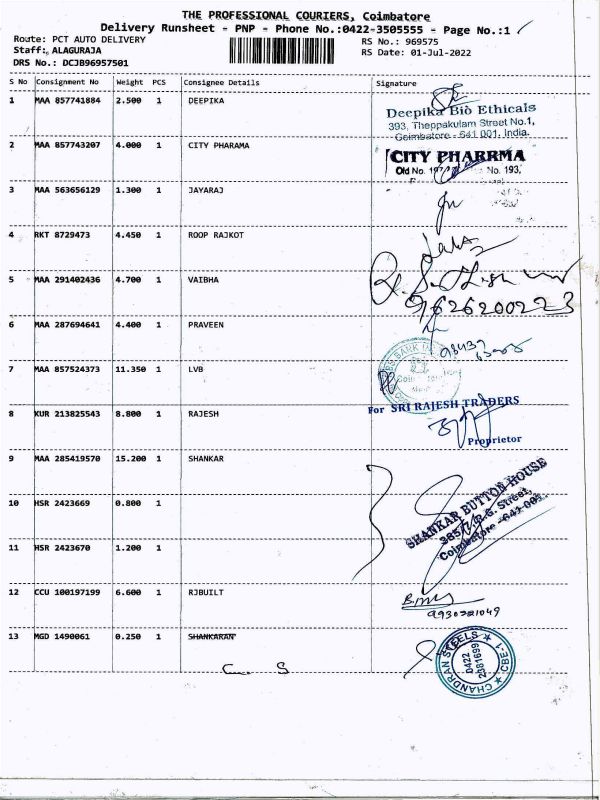 THE PROFESSIONAL COURIERS, Coimbatore
Delivery Runsheet - PNP - Phone No.:0422-3505555 - Page No.:1
Route: PCT AUTO DELIVERY
RS No.: 969575
Staff: ALAGURAJA
RS Date: 01-Jul-2022
DRS No.: DCJB96957501
S No Consignment No Weight PCS Consignee Details Signature
1 MAA 857741884 2.500 1 DEEPIKA
Deepika Bio Ethicals
393, Theppakulam Street No.1,
Coimbatore - 641 001, India.
2 MAA 857743207 4.000 1 CITY PHARAMA
CITY PHARRMA
Old No. No. 193,
3 MAA 563656129 1.300 1 JAYARAJ
4 RKT 8729473 4.450 1 ROOP RAJKOT
5 MAA 291402436 4.700 1 VAIBHA
91626200223
6 MAA 287694641 4.400 1 PRAVEEN
7 MAA 857524373 11.350 1 LVB
BANK
8 KUR 213825543 8.800 1 RAJESH
For SRI RAJESH TRADERS
Proprietor
9 MAA 285419570 15.200 1 SHANKAR
SHANKAR BUTTON HOUSE
Street,
Coimbatore - 641 001
10 HSR 2423669 0.800 1
11 HSR 2423670 1.200 1
12 CCU 100197199 6.600 1 RJBUILT
13 MGD 1490061 0.250 1 SHANKARAN
CHANDRAN STEELS CBE-1
0422
2381699